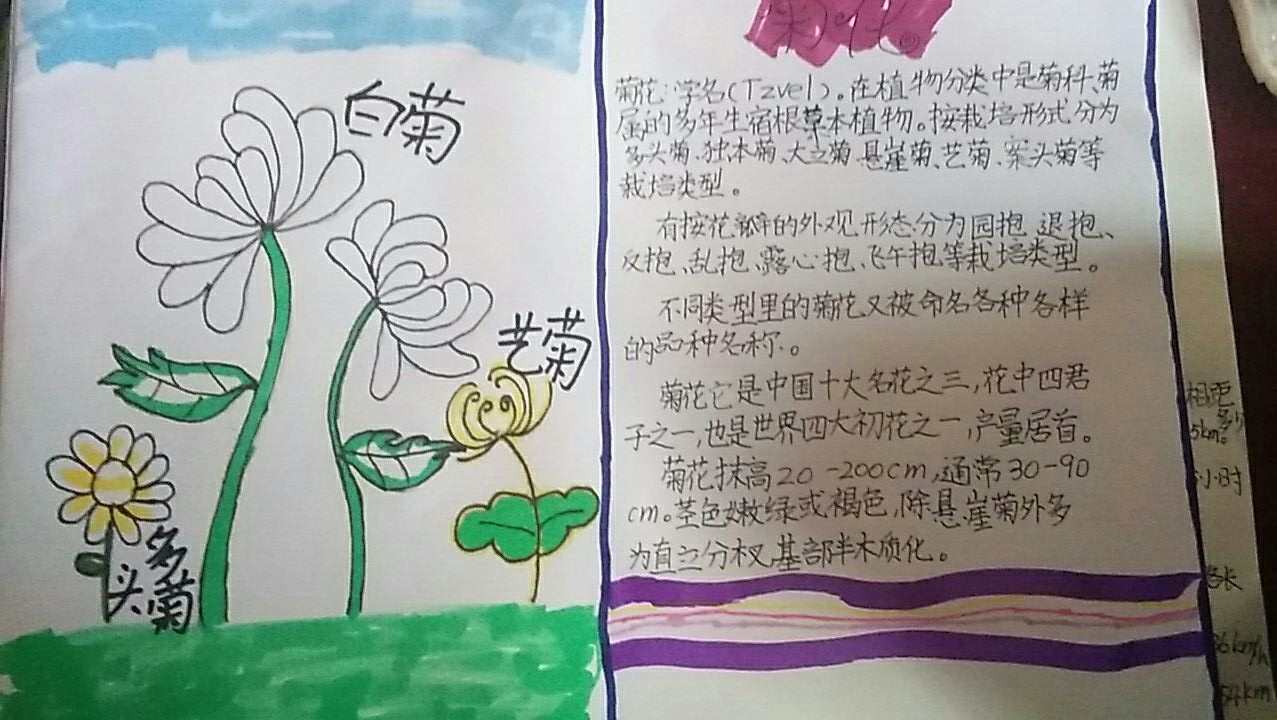 白菊
艺菊
多
头菊
菊花
菊花:学名(Tzvel)。在植物分类中是菊科、菊
属的多年生宿根草本植物。按栽培形式分为
多头菊、独本菊、大立菊、悬崖菊、艺菊、案头菊等
栽培类型。
有按花瓣的外观形态分为园抱、退抱、
反抱、乱抱、露心抱、飞午抱等栽培类型。
不同类型里的菊花又被命名各种各样
的品种名称.。
菊花它是中国十大名花之三,花中四君
子之一,也是世界四大初花之一,产量居首。
菊花抹高20-200cm,通常30-90
cm。茎色嫩绿或褐色,除悬崖菊外多
为直立分杈,基部半木质化。
相距
多少
5km。
小时
长
36km/h
54km